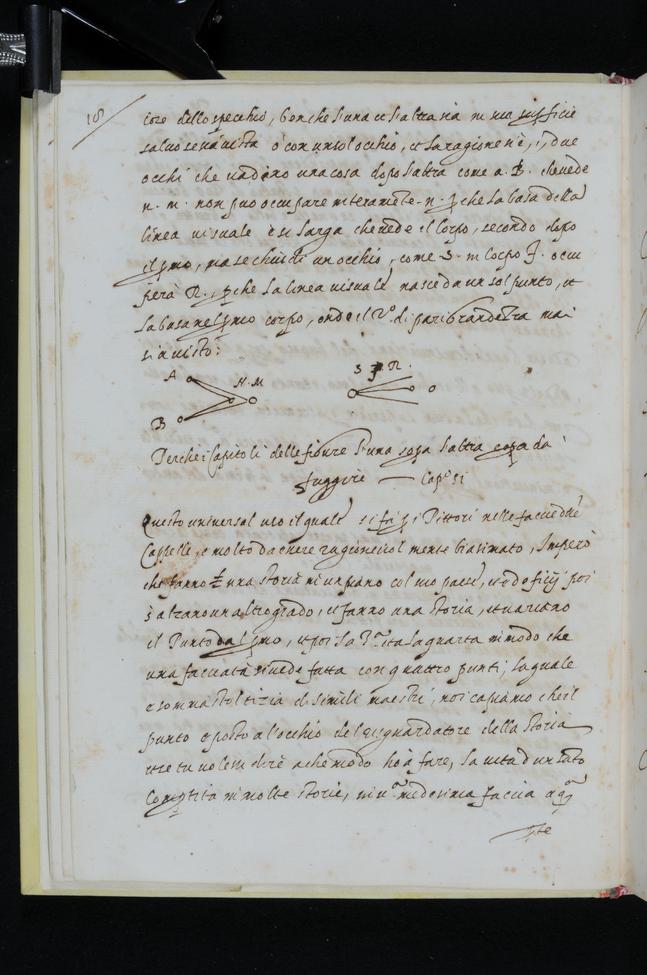 18
cose dello specchio, benche l'una et l'altra sia in sua sufficie
salvo se è vista ò con un sol occhio, et la ragione n'è, i, due
occhi che vedono una cosa dopo l'altra come a. B. che vede
n. m. non può occupare interamẽte n. ꝑche la basa della
linea visuale è si larga che vede il Corpo, secondo dopo
il pmo, ma se chiudi un occhio, come S. in Corpo f. occu
perà R., ꝑche la linea visuale nasce da un sol punto, et
la basa nel pmo corpo, onde il 2º. di pari grandezza mai
sia visto:
A N. M S f R.
B
Perche i Capitoli delle figure l'una sopa l'altra è opa da
fuggire — Cap.º 51
Questo universal uso il quale si fà ꝑ i Pittori nelle faccie dẽ
Cappelle, è molto da essere ragionevolmente biasimato, Imperò
che fanno una storia in un piano col suo paese, et edeficij poi
s'alzano un altro grado, et fanno una storia, et variano
il Punto dal pmo, et poi la 3.ª et la quarta in modo che
una facciata si vede fatta con quattro punti, la quale
è somma stoltizia di simili maestri, noi capiamo che il
punto è posto a l'occhio del risguardatore della storia
et se tu volessi dire a che modo hò à fare, la vita d'un santo
Compartita in molte storie, in una medesima faccia a qª
pte